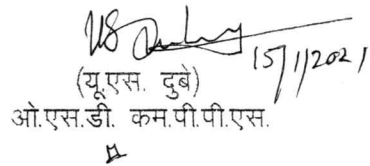 15/1/2021
(यू.एस. दुबे)
ओ.एस.डी. कम.पी.पी.एस.